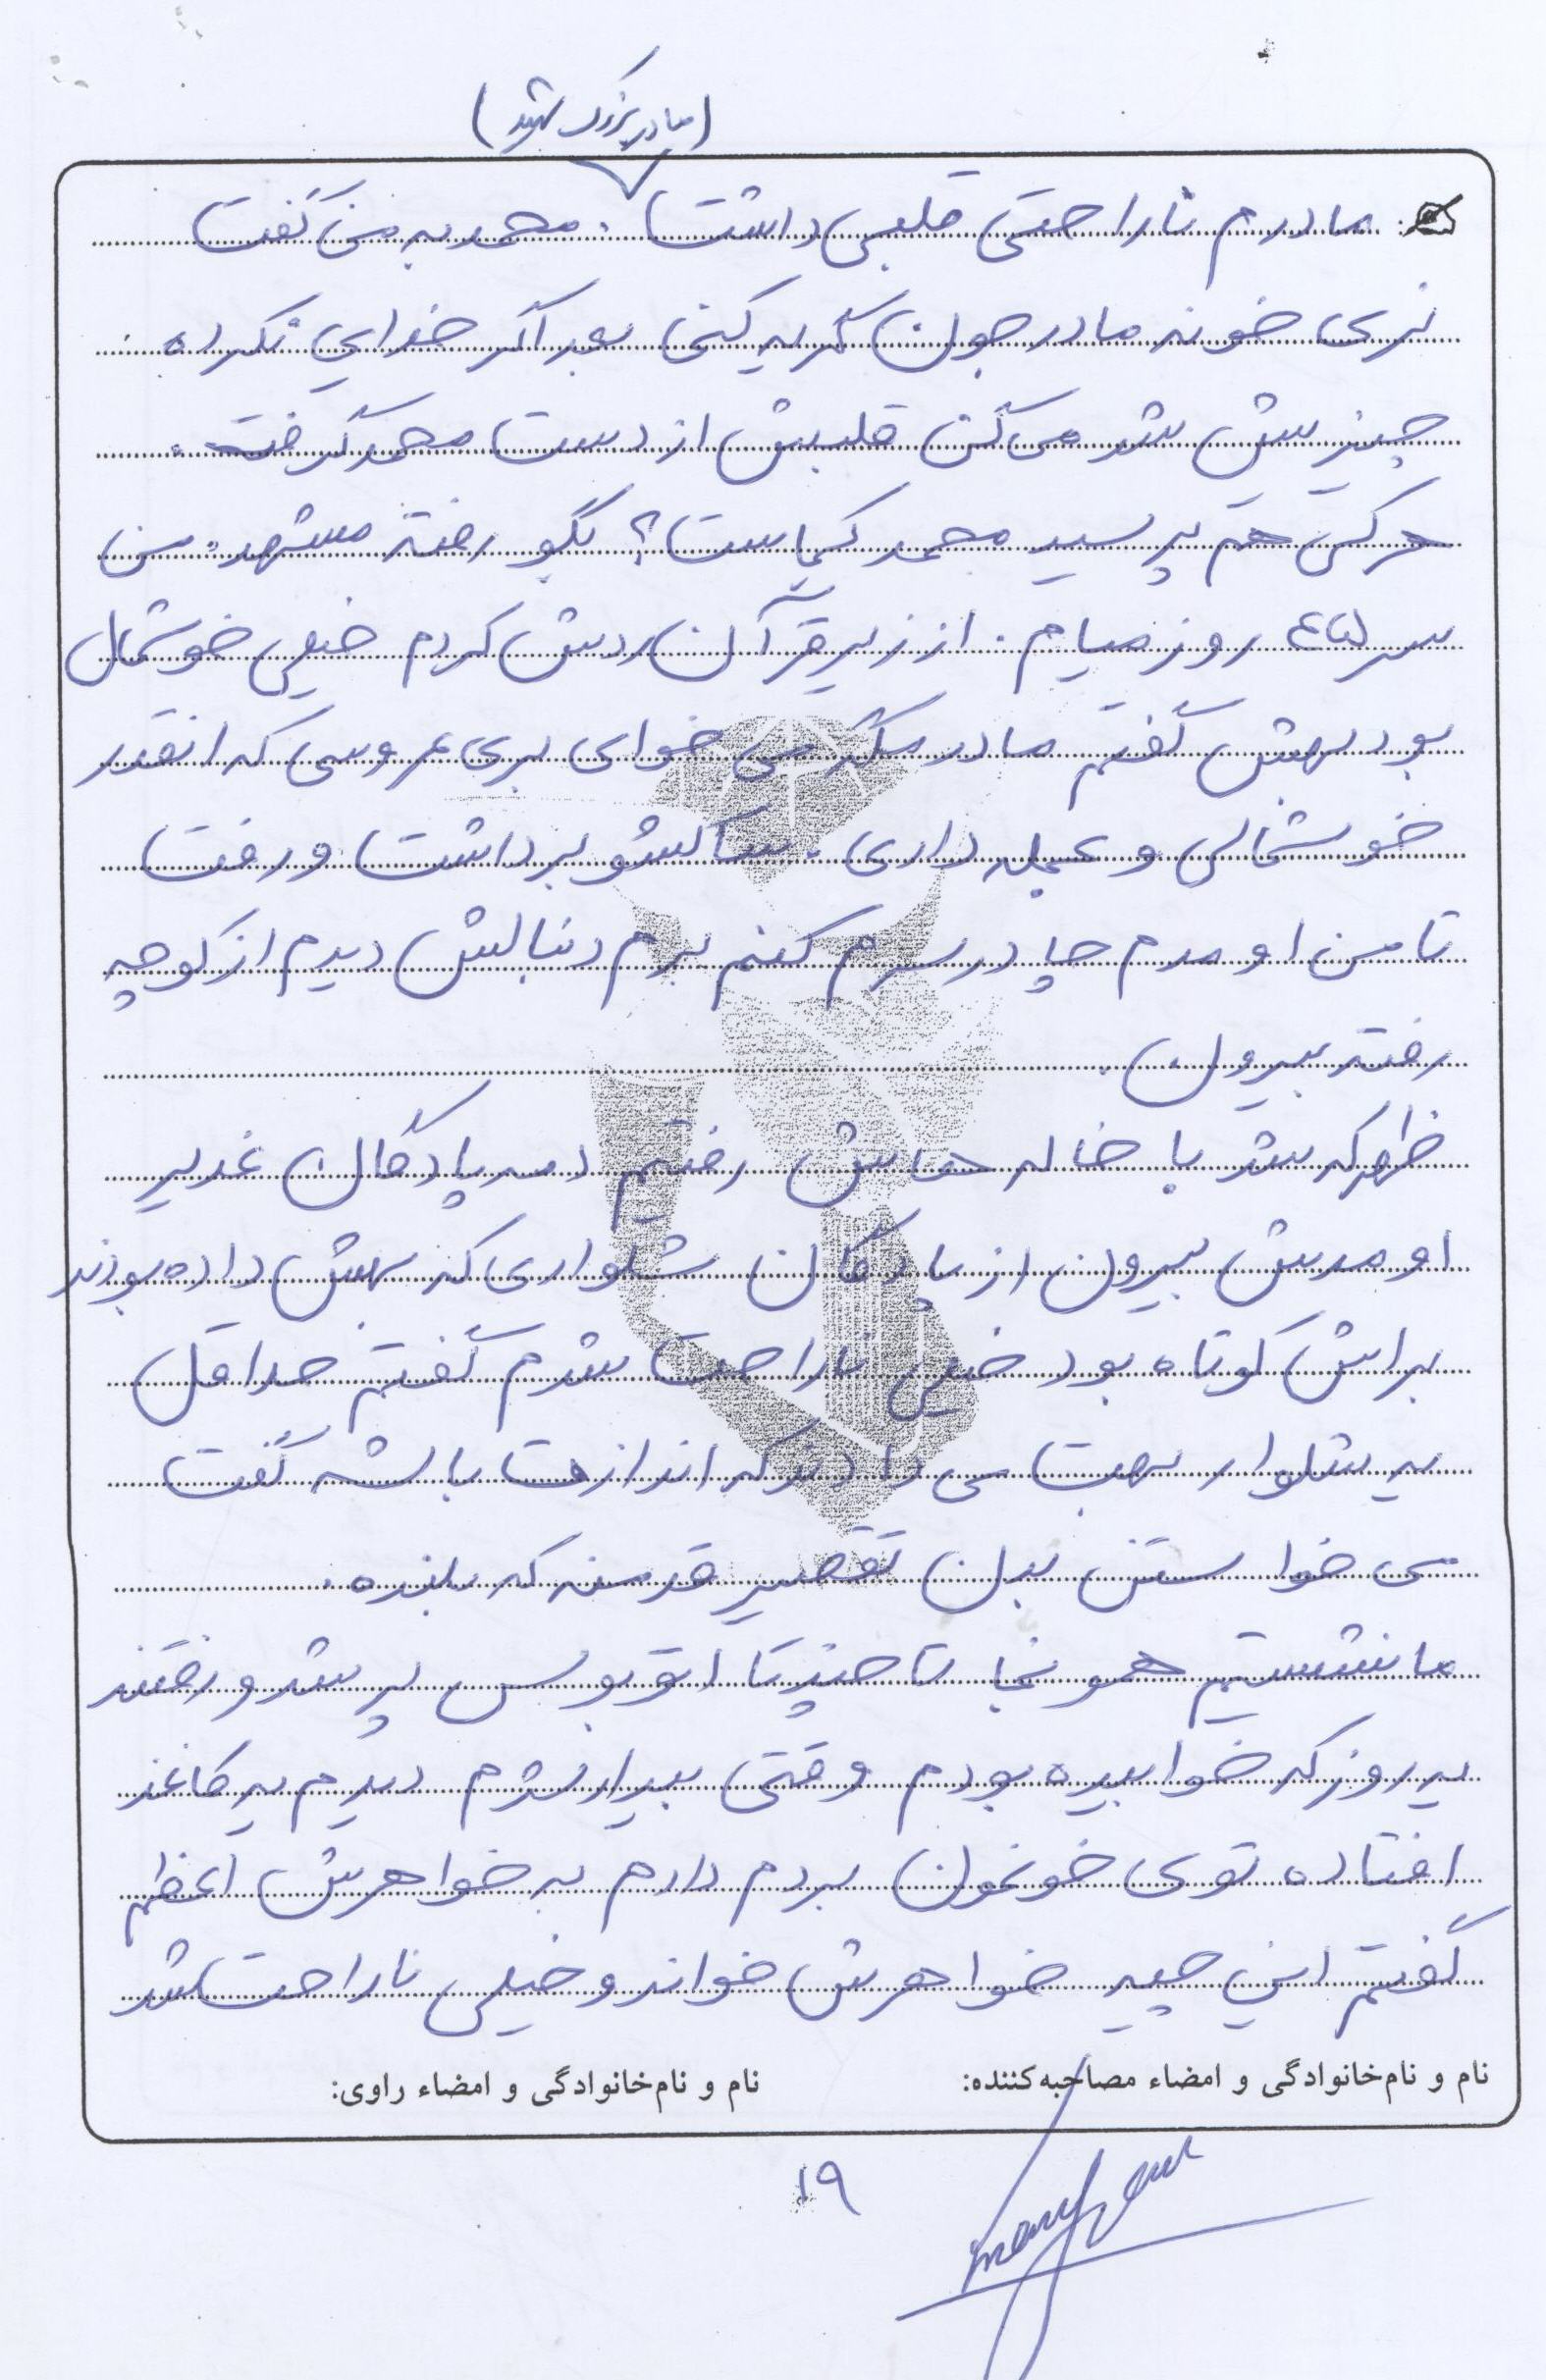 (مادربزرگ شهید)
مادرم ناراحتی قلبی داشت. محمد به من گفت
نری خونه مادرجون گریه کنی بعد اگر خدایی نکرده
چیزیش شد می گن قلبش از دست محمد گرفت.
هرکس هم پرسید محمد کجاست؟ بگو رفته مشهد. من
سر ۴۵ روز میام. از زیر قرآن ردش کردم خیلی خوشحال
بود بهش گفتم مادر مگر می خوای بری عروسی که انقدر
خوشحالی و عجله داری. ساکشو برداشت و رفت
تا من اومدم چادر سرم کنم برم دنبالش دیدم از کوچه
رفته بیرون.
ظهر که شد با خاله هاش رفتیم دمه پادگان غدیر
اومدش بیرون از پادگان شلواری که بهش داده بودند
براش کوتاه بود خیلی ناراحت شدم گفتم حداقل
یه شلوار بهت می دادند که اندازت باشه گفت
می خواستن بدن تقصیر قد منه که بلنده.
ما نشستیم همونجا تا چندتا اتوبوس پر شد و رفتند
یه روز که خوابیده بودم وقتی بیدار شدم دیدم یه کاغذ
افتاده توی خونمون بردم دادم به خواهرش اعظم
گفتم این چیه خواهرش خواند و خیلی ناراحت شد
نام و نام‌خانوادگی و امضاء مصاحبه‌کننده: نام و نام‌خانوادگی و امضاء راوی:
۱۹